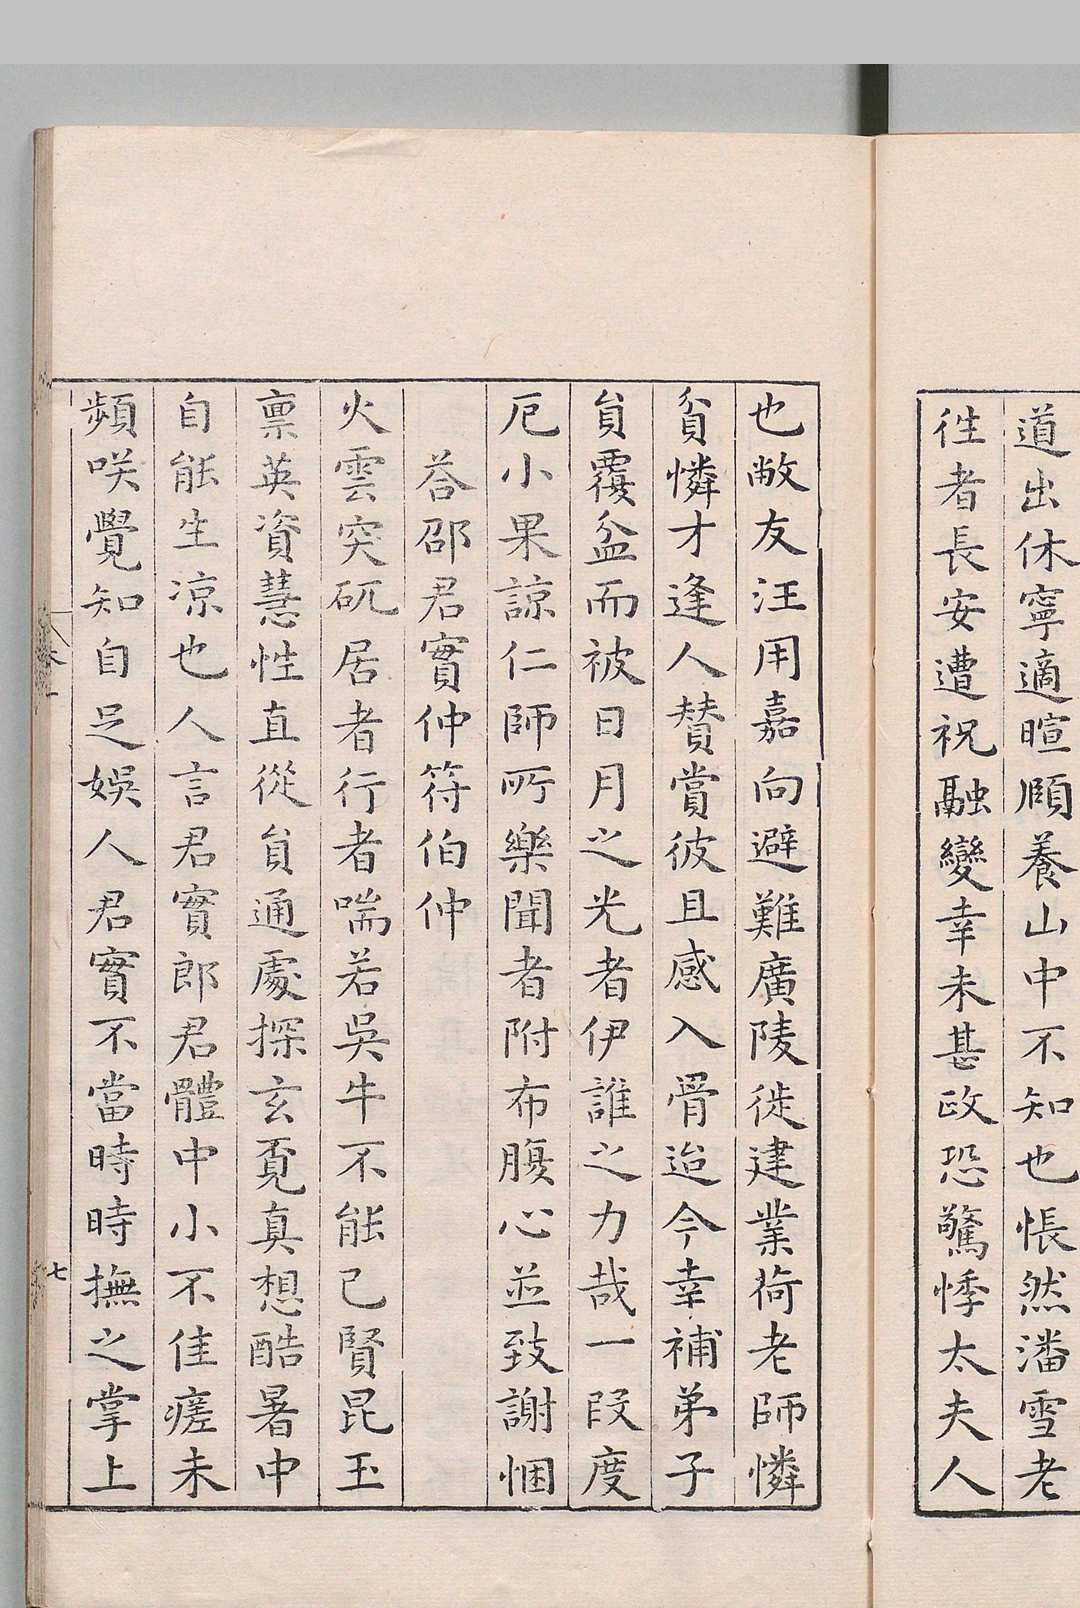 道出休寧適暄頋養山中不知也悵然潘雪老
徃者長安遭祝融變幸未甚政恐驚悸太夫人
也敝友汪用嘉向避難廣陵徙建業荷老師憐
貧憐才逢人賛賞彼且感入骨迨今幸補弟子
貟覆盆而被日月之光者伊誰之力哉一段度
厄小果諒仁師所樂聞者附布腹心並致謝悃
荅邵君實仲符伯仲
火雲突矹居者行者喘若吳牛不能已賢昆玉
禀英資慧性直從貟通處探玄覔真想酷暑中
自能生凉也人言君實郎君體中小不佳瘥未
頻咲覺知自足娛人君實不當時時撫之掌上
七